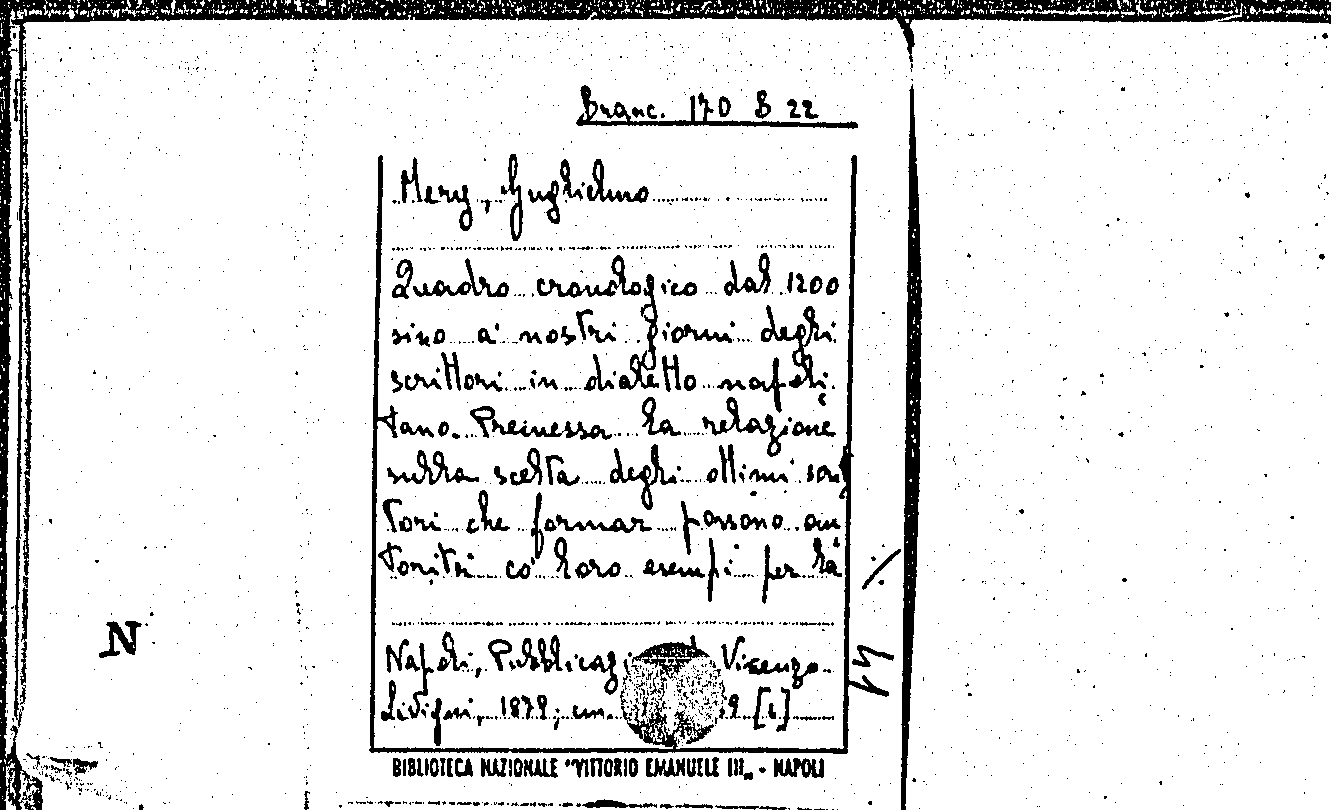 Branc. 170 B 22
Mery, Guglielmo
Quadro cronologico dal 1200
sino a' nostri giorni degli
scrittori in dialetto napoli.
tano. Premessa la relazione
sulla scelta degli ottimi scrit
tori che formar possono au
torità co' loro esempi per la
Napoli, Vicenzo
Livigni, 1879; cm. 9 [1]
BIBLIOTECA NAZIONALE "VITTORIO EMANUELE III„ - NAPOLI
N